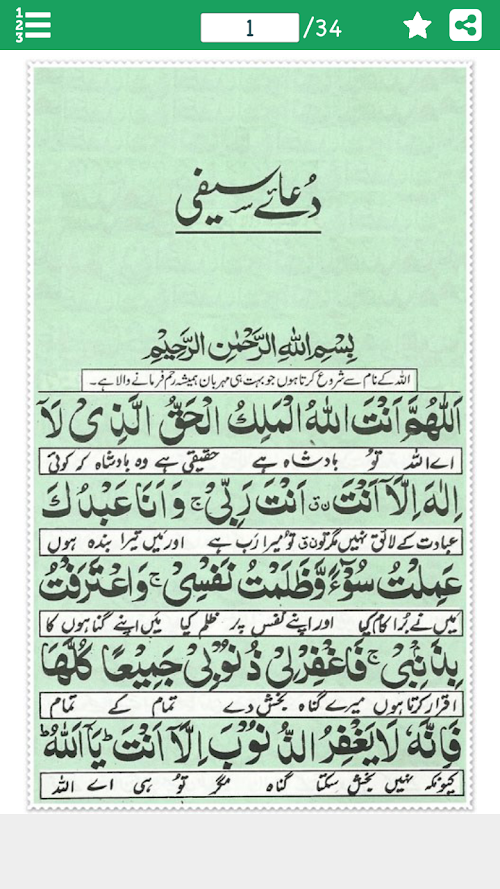 1
2
3
1 /34
دُعائے سیفی
بِسْمِ اللهِ الرَّحْمٰنِ الرَّحِيْمِ
اللہ کے نام سے شروع کرتا ہوں جو بہت ہی مہربان ہمیشہ رحم فرمانے والا ہے۔
اَللّٰهُمَّ اَنْتَ اللهُ الْمَلِكُ الْحَقُّ الَّذِیْ لَاۤ
اے اللہ تُو بادشاہ ہے حقیقی ہے وہ بادشاہ کہ کوئی
اِلٰهَ اِلَّاۤ اَنْتَ ن ق اَنْتَ رَبِّیْ ج وَ اَنَا عَبْدُكَ
عبادت کے لائق نہیں مگر تو ن ق تُو میرا رَب ہے اور مَیں تیرا بندہ ہوں
عَمِلْتُ سُوْٓءً وَّظَلَمْتُ نَفْسِیْ ج وَاعْتَرَفْتُ
مَیں نے بُرا کام کیا اور اپنے نفس پر ظلم کیا مَیں اپنے گناہوں کا
بِذَنْۢبِیْ ج فَاغْفِرْلِیْ ذُنُوْبِیْ جَمِيْعًا كُلَّهَا
اقرار کرتا ہوں میرے گناہ بخش دے تمام کے تمام
فَاِنَّهٗ لَا يَغْفِرُ الذُّنُوْبَ اِلَّاۤ اَنْتَ ط يَاۤ اَللهُ ط
کیونکہ نہیں بخش سکتا گناہ مگر تُو ہی اے اللہ